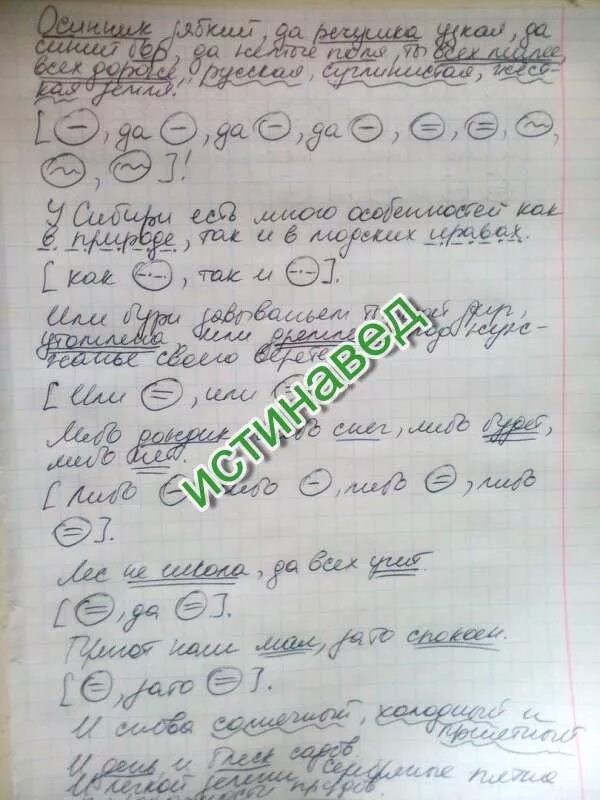 Осинник зябкий, да речушка узкая, да
синий бор, да желтые поля, ты всех милее,
всех дороже, русская, суглинистая, жест-
кая земля!
[ – , да – , да – , да – , = , = , ~ ,
~ , ~ ]!
У Сибири есть много особенностей как
в природе, так и в людских нравах.
[ как –·–· , так и –·–· ].
Или бури завываньем ты, мой друг,
утомлена, или дремлешь под жуж-
жанье своего
[ Или = , или =
Либо дождик, либо снег, либо будет,
либо нет.
[ Либо – , либо – , либо = , либо
= ].
Лес не школа, да всех учит.
[ = , да = ].
Приют наш мал, зато спокоен.
[ = , зато = ].
И снова солнечный, холодный и
приютный
И день, и блеск садов
И легкой зелени серебряные пятна
прудов.
истинавед